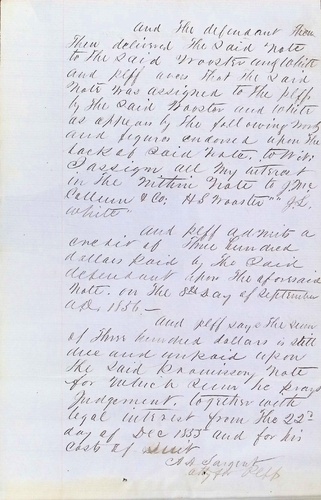 And the defendant then
Then delivered the said Note
to the said Wooster and White
and plff avers that the said
Note was assigned to the plff
by the said Wooster and White
as appears by the following words
and figures endorsed upon the
back of said Note. to Wit:
I assign all my interest
in the within Note to J Mc
Callum & Co: H S Wooster" J. L.
White"
And plff admits a
credit of three hundred
dollars paid by the said
defendant upon the aforesaid
Note. on the 8th Day of September
A.D. 1856 —
And plff says the sum
of Three hundred dollars is still
due and unpaid upon
the said Promissory Note
for which sum he prays
Judgement, together with
legal interest from the 22nd
day of Dec 1855 and for his
costs of suit
A A Sargent
atty for Plff